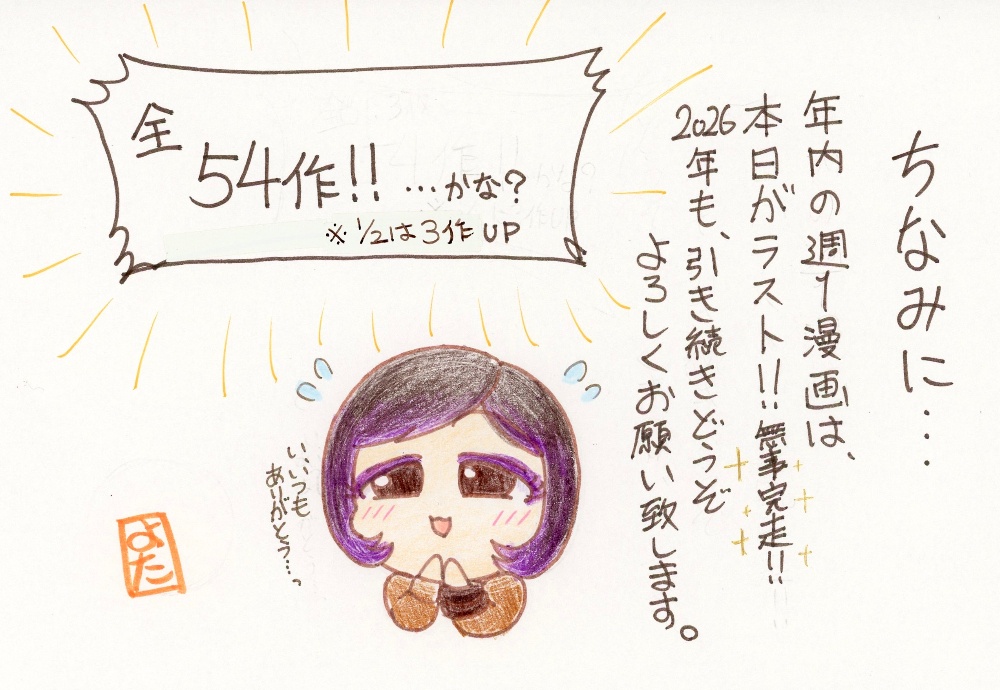 ちなみに…
年内の週1漫画は、
本日がラスト!! 無事完走!!
2026年も、引き続きどうぞ
よろしくお願い致します。
全
54作!! …かな?
※1/2は3作UP
い、いつも
ありがとう…っ
よた